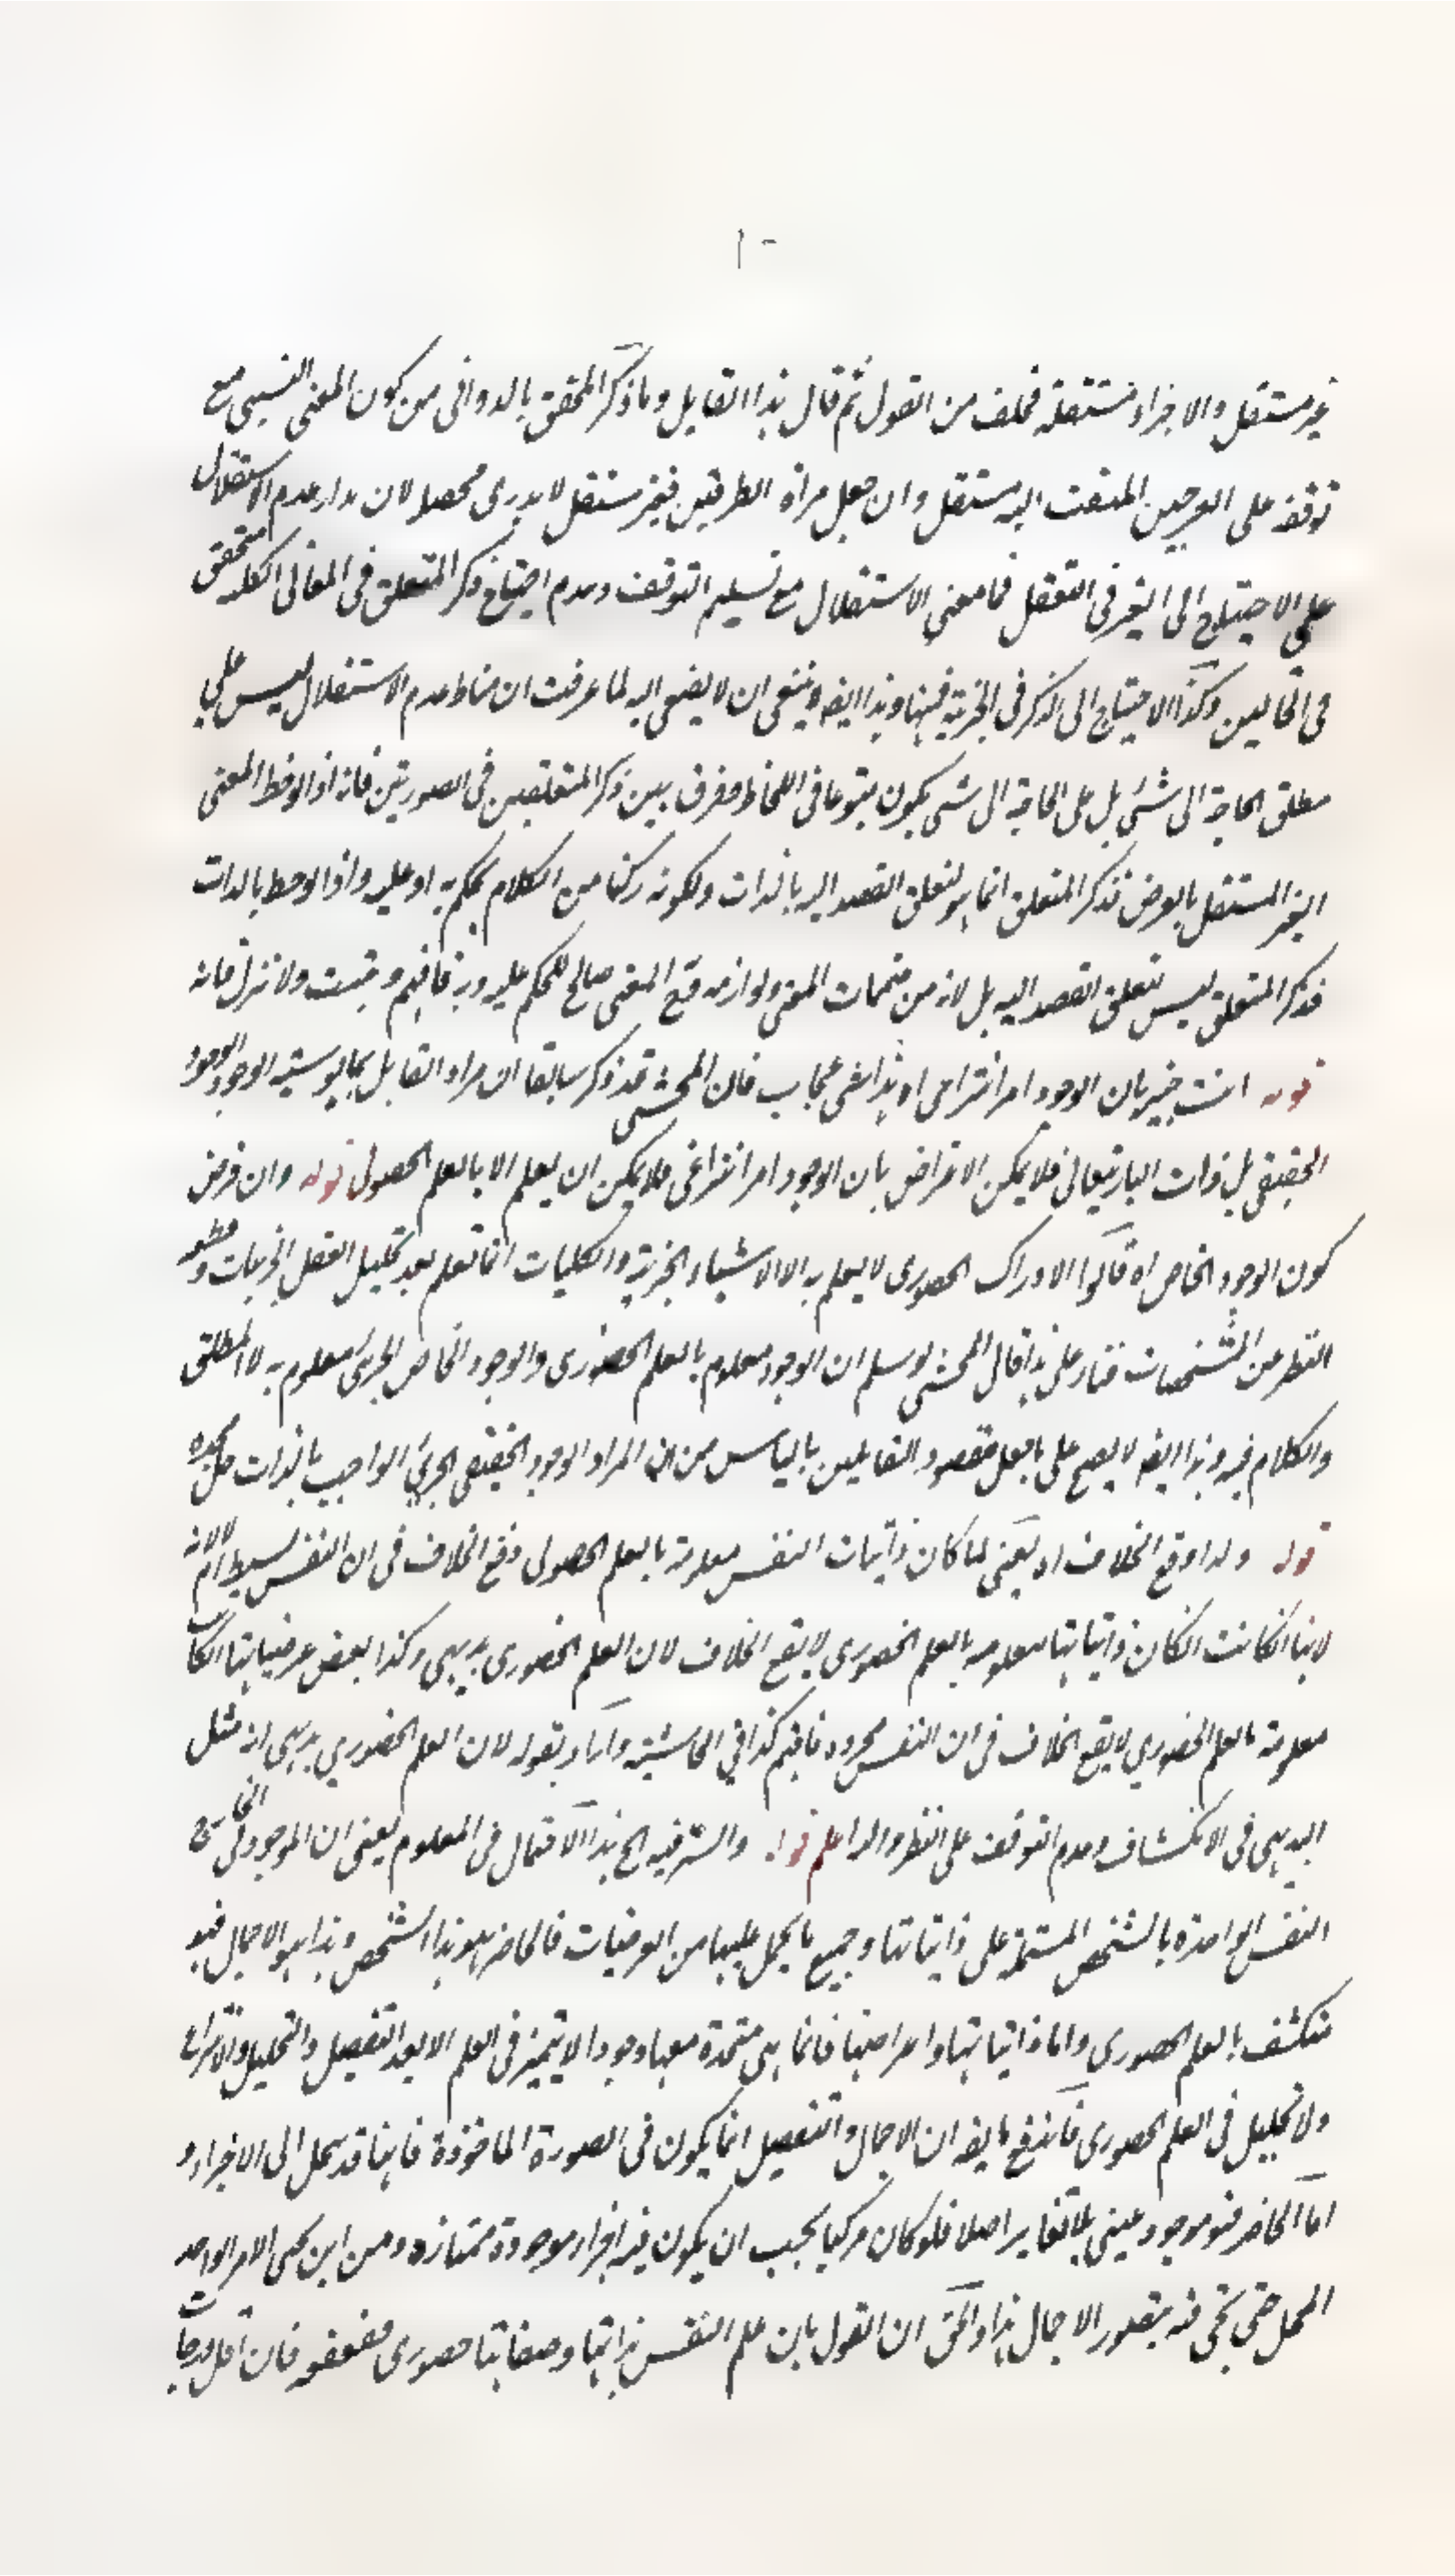 غير مستقل والاجزاء مستقلة فخلف من القول ثم قال هذا القايل وما ذكر المحقق بالدوانى من كون المعنى النسبى مع
توقفه على الملتفت اليه مستقل وان جعل مرآة الطرفين فغير مستقل لا يدرى محصله لان مدار عدم الاستقلال
على الاحتياج الى الغير فى التعقل فما معنى الاستقلال مع تسليم التوقف وعدم احتياج ذكر المتعلق فى المعانى الكلية متحقق
فى الحالين وكذا الاحتياج الى الذكر فى الجزئية فيهما وهذا ايضه ينبغى ان لا يصغى اليه لما عرفت ان مناط عدم الاستقلال ليس على
مطلق الحاجة الى شئ بل على الحاجة الى شئ يكون متبوعا فى اللحاظ ففرق بين ذكر المتعلقين فى الصورتين فانه اذا لوحظ المعنى
الغير المستقل بالعرض فذكر المتعلق انما هو لتعلق القصد اليه بالذات ولكونه ركنا من الكلام يحكم به او عليه واذا لوحظ بالذات
فذكر المتعلق ليس لتعلق القصد اليه بل لانه من متممات المعنى ولوازمه فتح المعنى صالح للحكم عليه وبه فافهم وتثبت ولا تزل فانه
قوله انت خبير بان الوجود امر انتزاعى اه هذا شئ عجاب فان المحشى قد ذكر سابقا ان مراد القايل بما هو الوجود
الحقيقى بل ذات البارتيعالى فلا يمكن الاعتراض بان الوجود امر انتزاعى فلا يمكن ان يعلم الا بالعلم الحصولى قوله وان فرض
كون الوجود الخاص اه قالوا الادراك الحضورى لا يعلم به الا الاشياء الجزئية والكليات انما تعلم بعد تحليل العقل الجزئيات وقطع
النظر عن المشخصات فبناء على هذا قال المحشى لو سلم ان الوجود معلوم بالعلم الحضورى والوجود الخاص الجزئى معلوم به لا المطلق
والكلام فيه وهذا ايضه لا يصح على ما جعل مقصود القايلين من ان المراد الوجود الحقيقى الجزئى الواجب بالذات جل مجده
قوله ولذا وقع الخلاف اه يعنى لما كان ذاتيات النفس معلومة بالعلم الحصولى وقع الخلاف فى ان النفس بسيط ام لا لانه
لانها لكانت لكان ذاتياتها معلومه بالعلم الحضورى لا يقع الخلاف لان العلم الحضورى بديهى وكذا بعض عرضياتها لكان
معلومة بالعلم الحضورى لا يقع الخلاف فى ان النفس مجردة فافهم كذا فى الحاشية واراد بقوله لان العلم الحضورى بديهى انه مثل
البديهى فى الانكشاف وعدم التوقف على النظر والله اعلم قوله والسر فيه الخ هذا الاجمال فى المعلوم يعنى ان الموجود فى الخارج
النفس الواحدة بالشخص المشتملة على ذاتياتها وجميع ما يحمل عليها من العرضيات فالحاضر هو هذا الشخص وهذا هو الاجمال فهو
منكشف بالعلم الحضورى واما ذاتياتها واعراضها فانما هى متحدة معها وجودا لا يتميز فى العلم الا بعد التفصيل والتحليل والانتزاع
ولا تحليل فى العلم الحضورى فاندفع ما يقه ان الاجمال والتفصيل انما يكون فى الصورة الماخوذة فانها قد تحلل الى الاجزاء و
اما الحاضر فهو موجود عينى بلا تغاير اصلا فلو كان مركبا يجب ان يكون فيه اجزاء موجودة ممتازه ومن اين يجئ الامر الواحد
المجمل حتى يتصور الاجمال هذا والحق ان القول بان علم النفس بذاتها وصفاتها حضورى فان اقل درجات